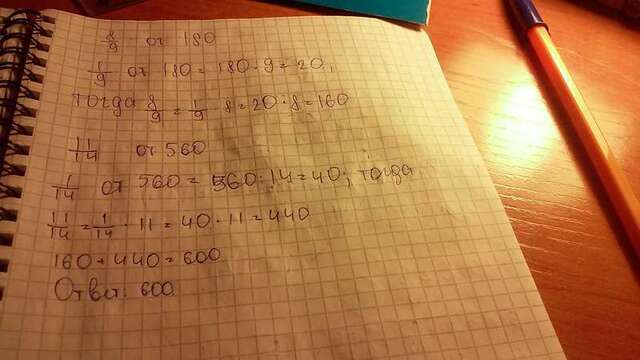 8/9 от 180
1/9 от 180 = 180 : 9 = 20,
тогда 8/9 = 1/9 8 = 20 · 8 = 160
11/14 от 560
1/14 от 560 = 560 : 14 = 40; тогда
11/14 = 1/14 · 11 = 40 · 11 = 440
160 + 440 = 600
Ответ: 600